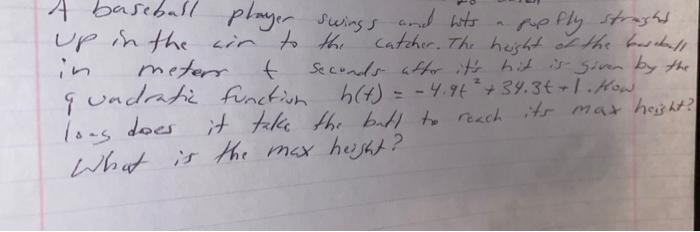 A baseball player swings and hits a pop fly straight
up in the air to the catcher. The height of the baseball
in meters t seconds after it's hit is given by the
quadratic function h(t) = -4.9t² + 34.3t + 1. How
long does it take the ball to reach its max height?
What is the max height?